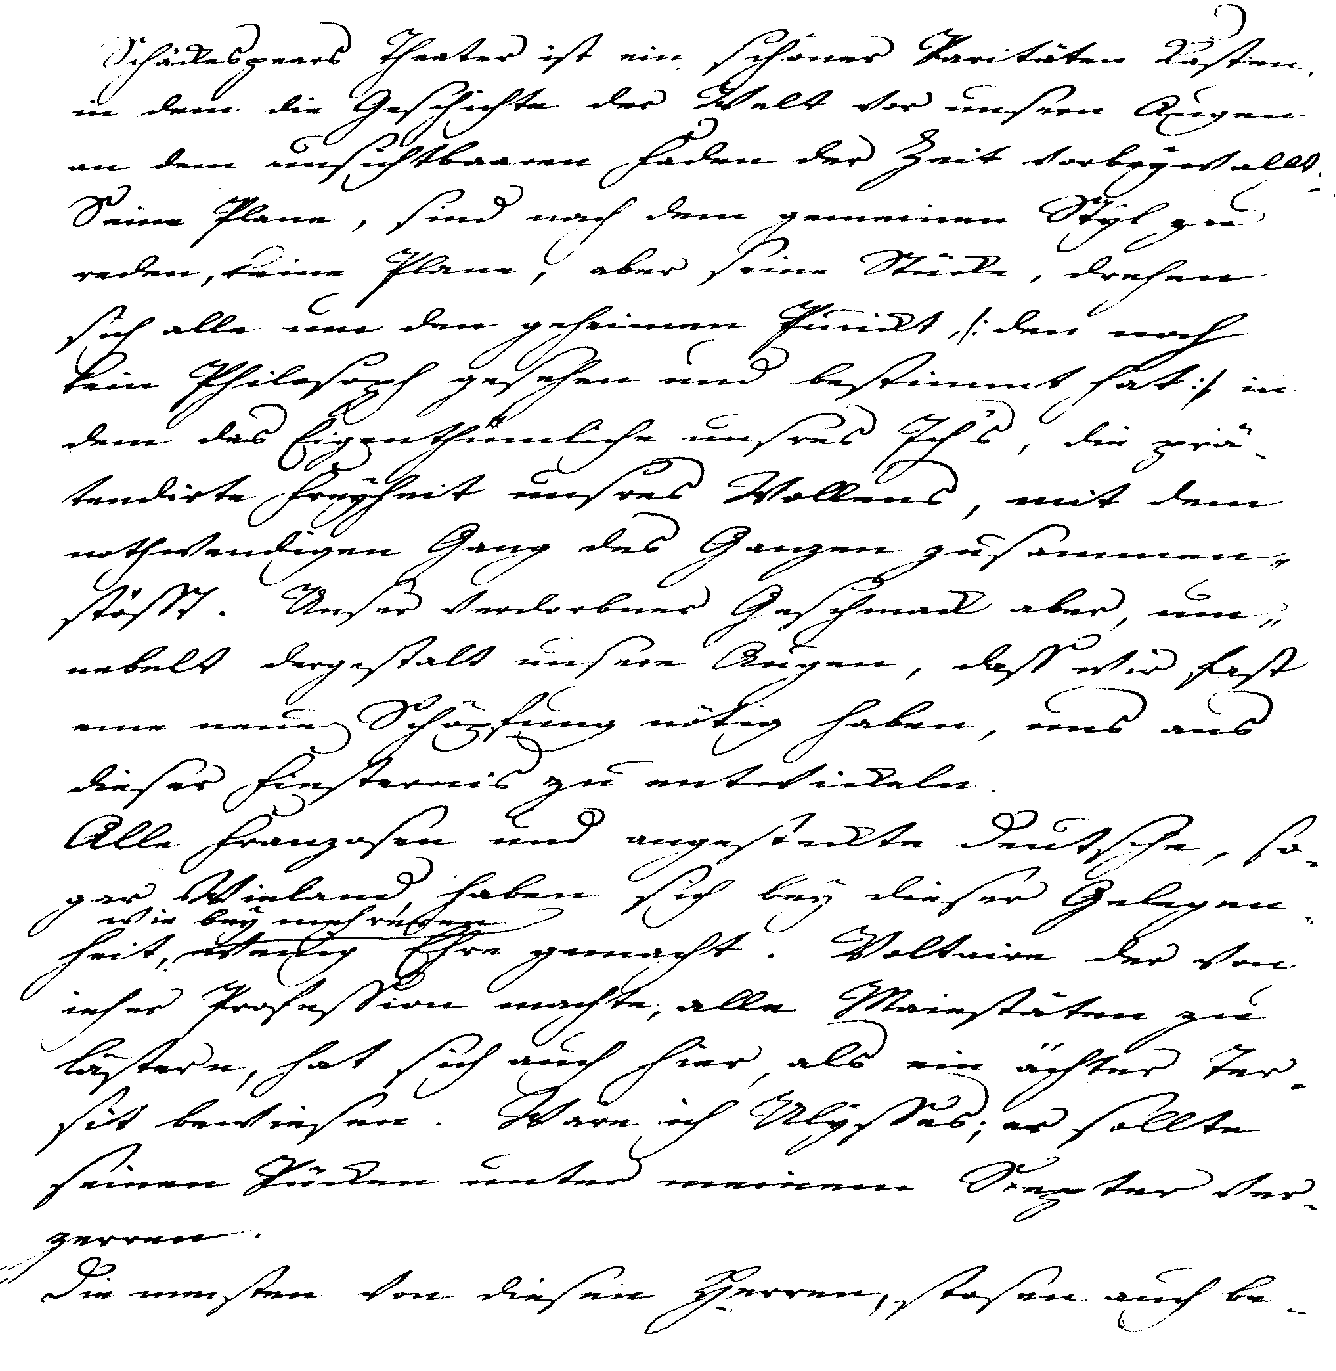 Schäckespears Theater ist ein schöner Raritäten Kasten,
in dem die Geschichte der Welt vor unsern Augen
an dem unsichtbaaren Faden der Zeit vorbeywallt.
Seine Plane, sind nach dem gemeinen Styl zu
reden, keine Plane, aber seine Stücke, drehen
sich alle um den geheimen Punckt, /: den noch
kein Philosoph gesehen und bestimmt hat :/ in
dem das Eigenthümliche unsres Ich's, die prä-
tendirte Freyheit unsres Wollens, mit dem
nothwendigen Gang des Ganzen zusammen-
stösst. Unser verdorbner Geschmack aber, um-
nebelt dergestalt unsere Augen, dass wir fast
eine neue Schöpfung nötig haben, uns aus
dieser Finsternis zu entwickeln.
Alle Franzosen und angesteckte Deutsche, so-
gar Wieland, haben sich bey dieser Gelegen-
wie bey mehreren
heit, wenig Ehre gemacht. Voltaire der von
ieher Profession machte, alle Maiestäten zu
lästern, hat sich auch hier, als ein ächter Ter-
sit bewiesen. Wäre ich Ulysses; er sollte
seinen Rücken unter meinem Scepter ver-
zerren.
Die meisten von diesen Herren, stosen auch be-